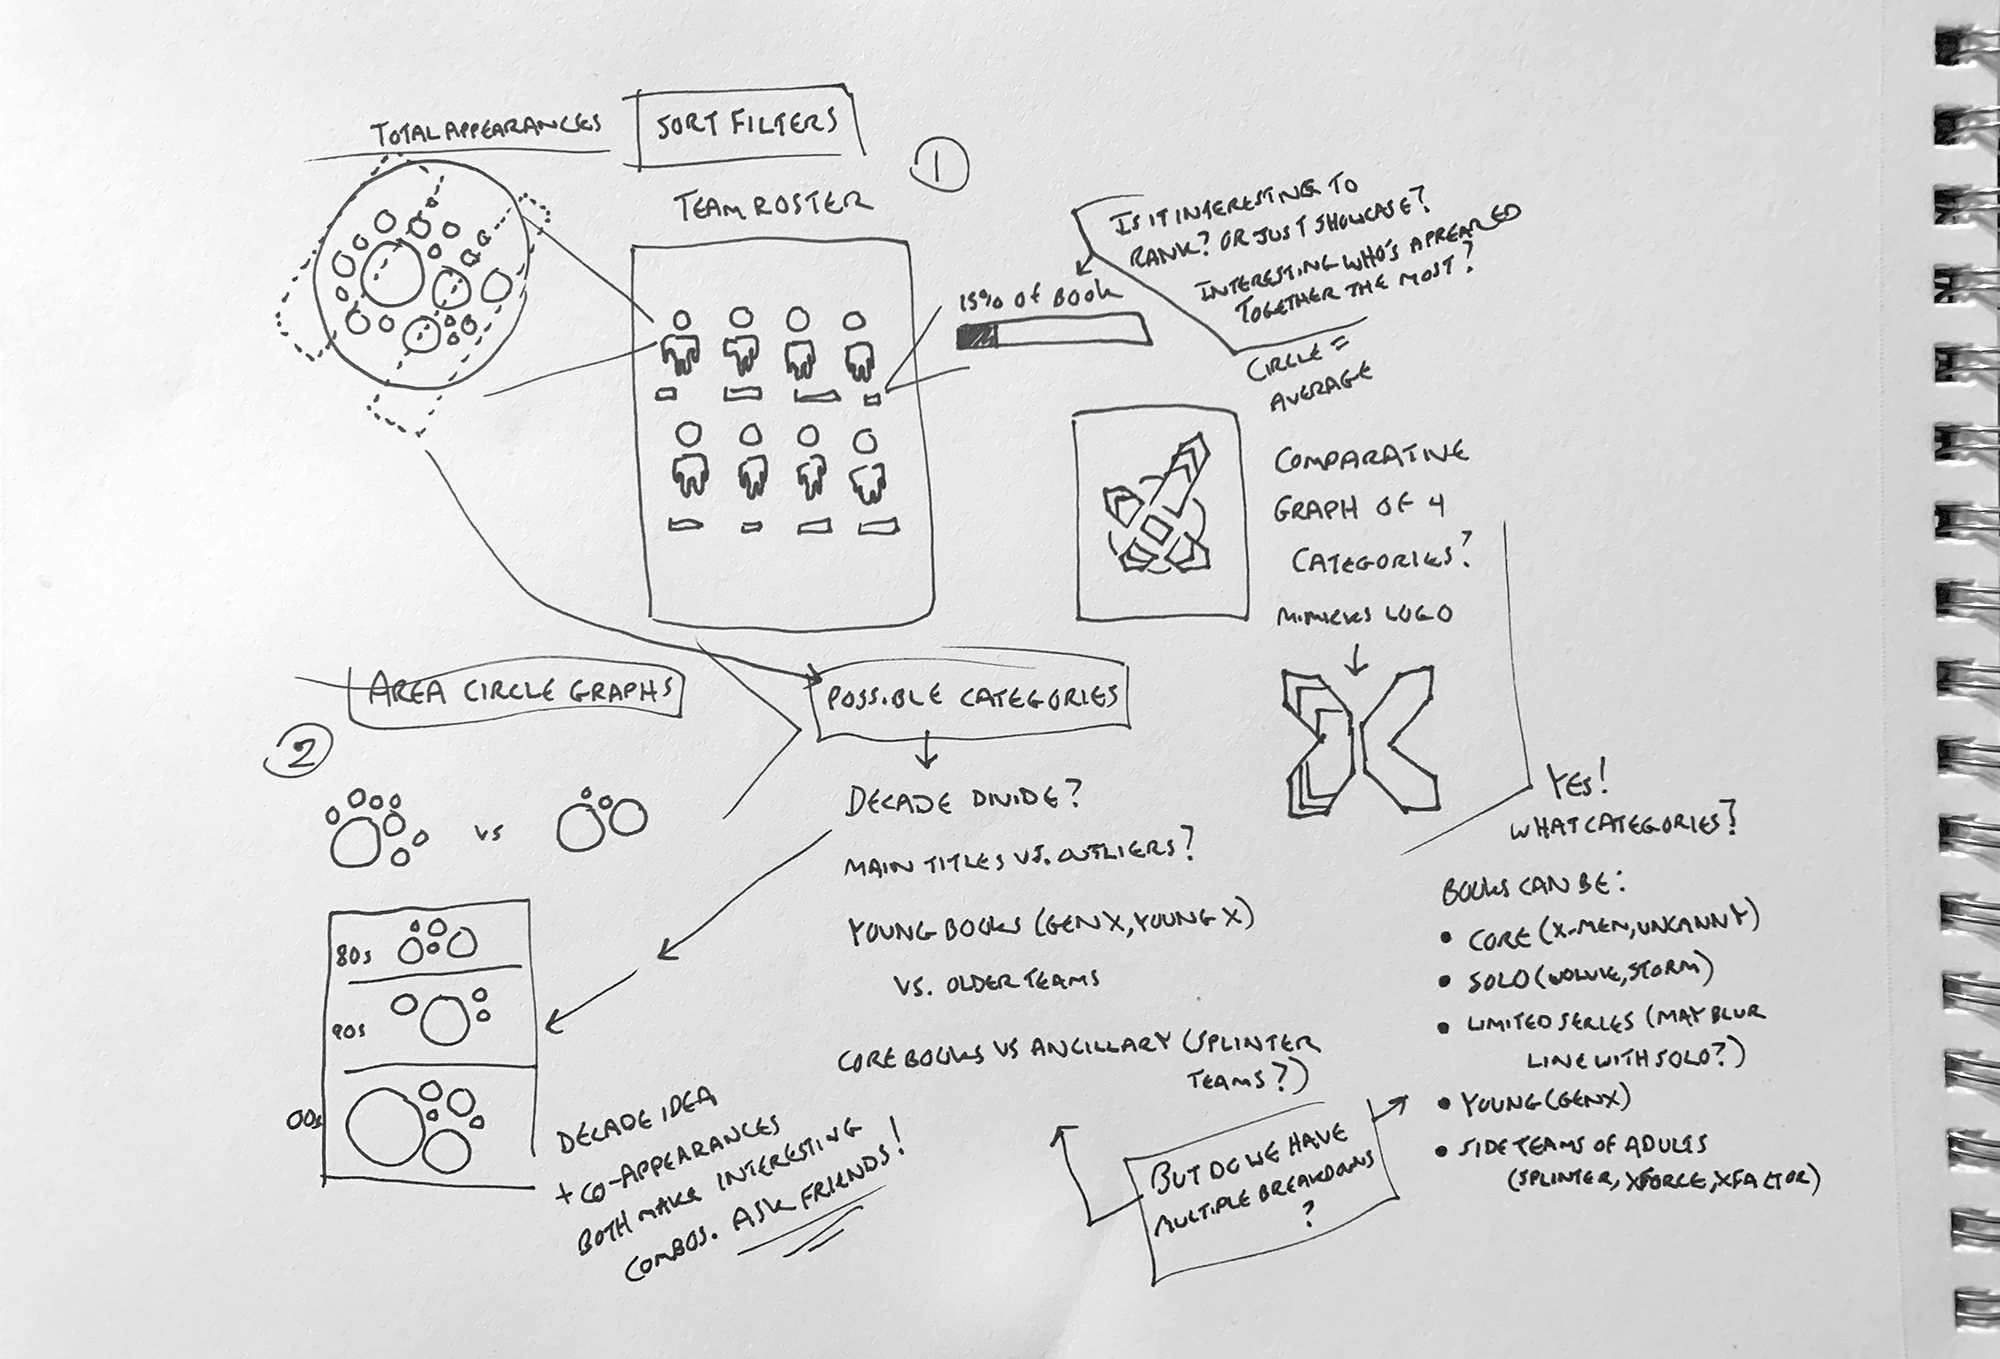 TOTAL APPEARANCES
SORT FILTERS
1
TEAM ROSTER
IS IT INTERESTING TO
RANK? OR JUST SHOWCASE?
INTERESTING WHO'S APPEARED
TOGETHER THE MOST?
15% OF BOOK
CIRCLE =
AVERAGE
COMPARATIVE
GRAPH OF 4
CATEGORIES?
MIMICKS LOGO
AREA CIRCLE GRAPHS
POSSIBLE CATEGORIES
2
VS
DECADE DIVIDE?
MAIN TITLES VS. OUTLIERS?
YOUNG BOOKS (GENX, YOUNG X)
VS. OLDER TEAMS
CORE BOOKS VS ANCILLARY (SPLINTER
TEAMS?)
BUT DO WE HAVE
MULTIPLE BREAKDOWNS
?
80s
90s
00s
DECADE IDEA
+ CO-APPEARANCES
BOTH MAKE INTERESTING
COMBOS. ASK FRIENDS!
YES!
WHAT CATEGORIES?
BOOKS CAN BE:
• CORE (X-MEN, UNCANNY)
• SOLO (WOLVIE, STORM)
• LIMITED SERIES (MAY BLUR
LINE WITH SOLO?)
• YOUNG (GENX)
• SIDE TEAMS OF ADULTS
(SPLINTER, XFORCE, XFACTOR)